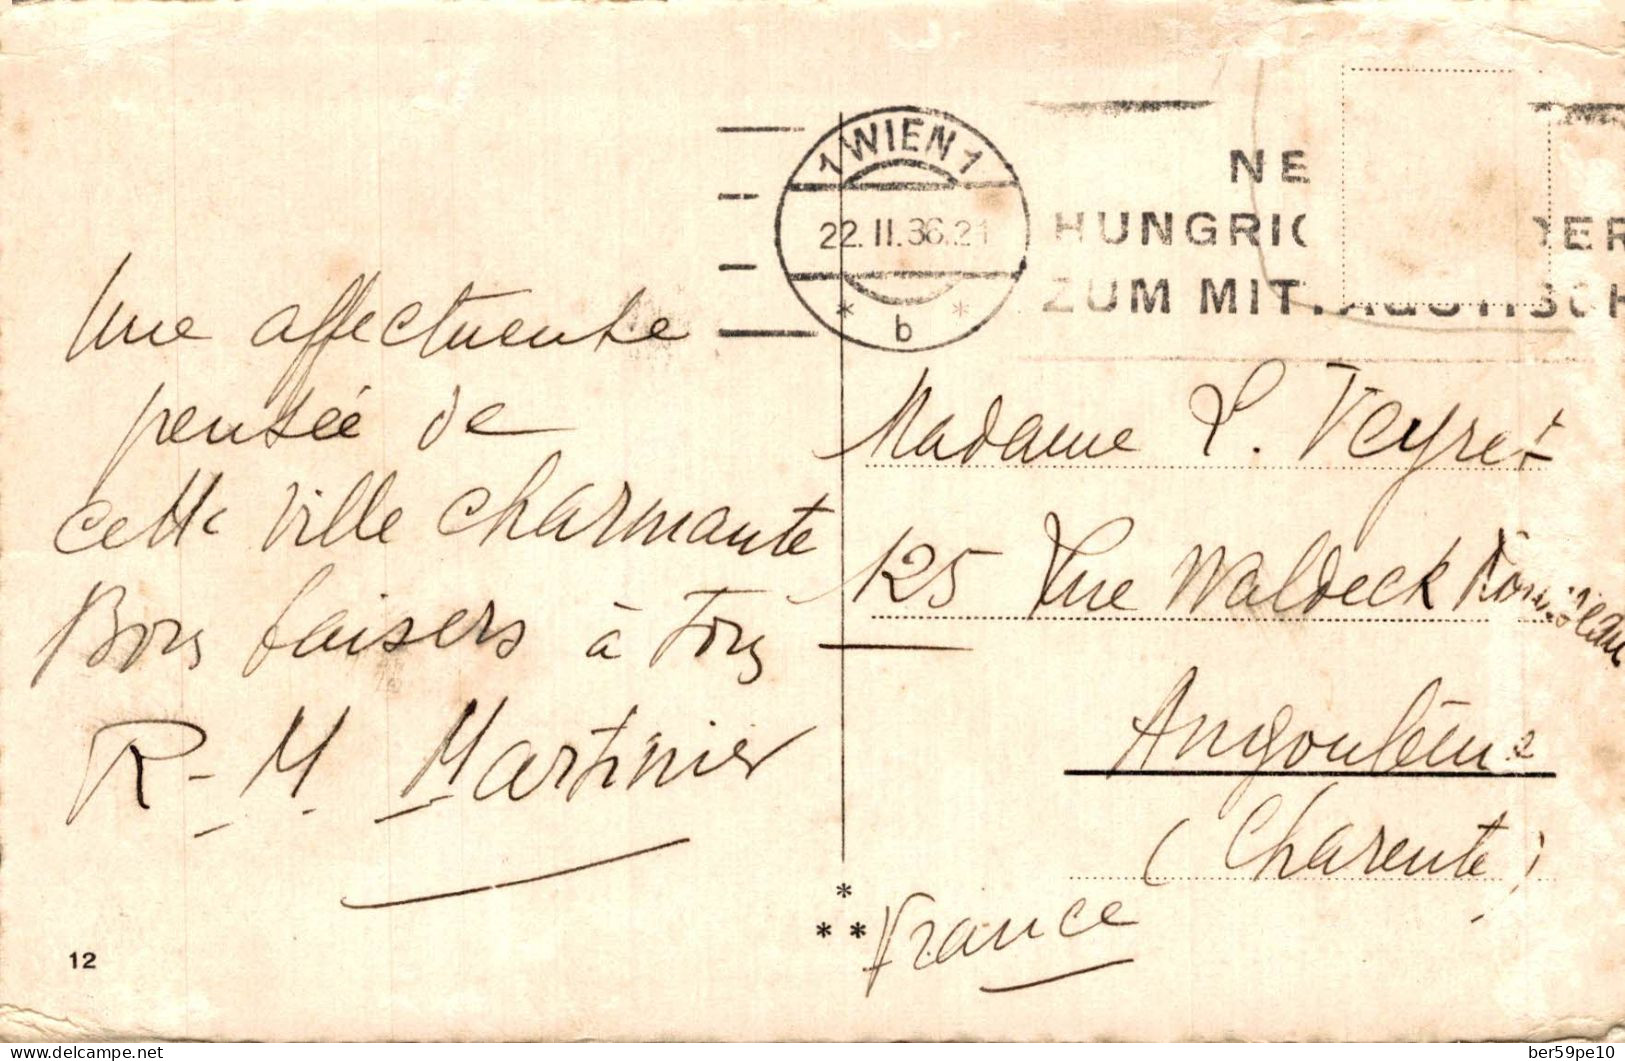 1 WIEN 1
22.II.36.21
* b *
NE
HUNGRI
DER
ZUM MITTAGSTISCH
Une affectueuse
pensée de
cette ville charmante
Bons baisers à Tous
R-M. Martinier
Madame L. Veyret
125 Rue Waldeck Rousseau
Angoulême
(Charente)
France
*
* *
12
www.delcampe.net
ber59pe10